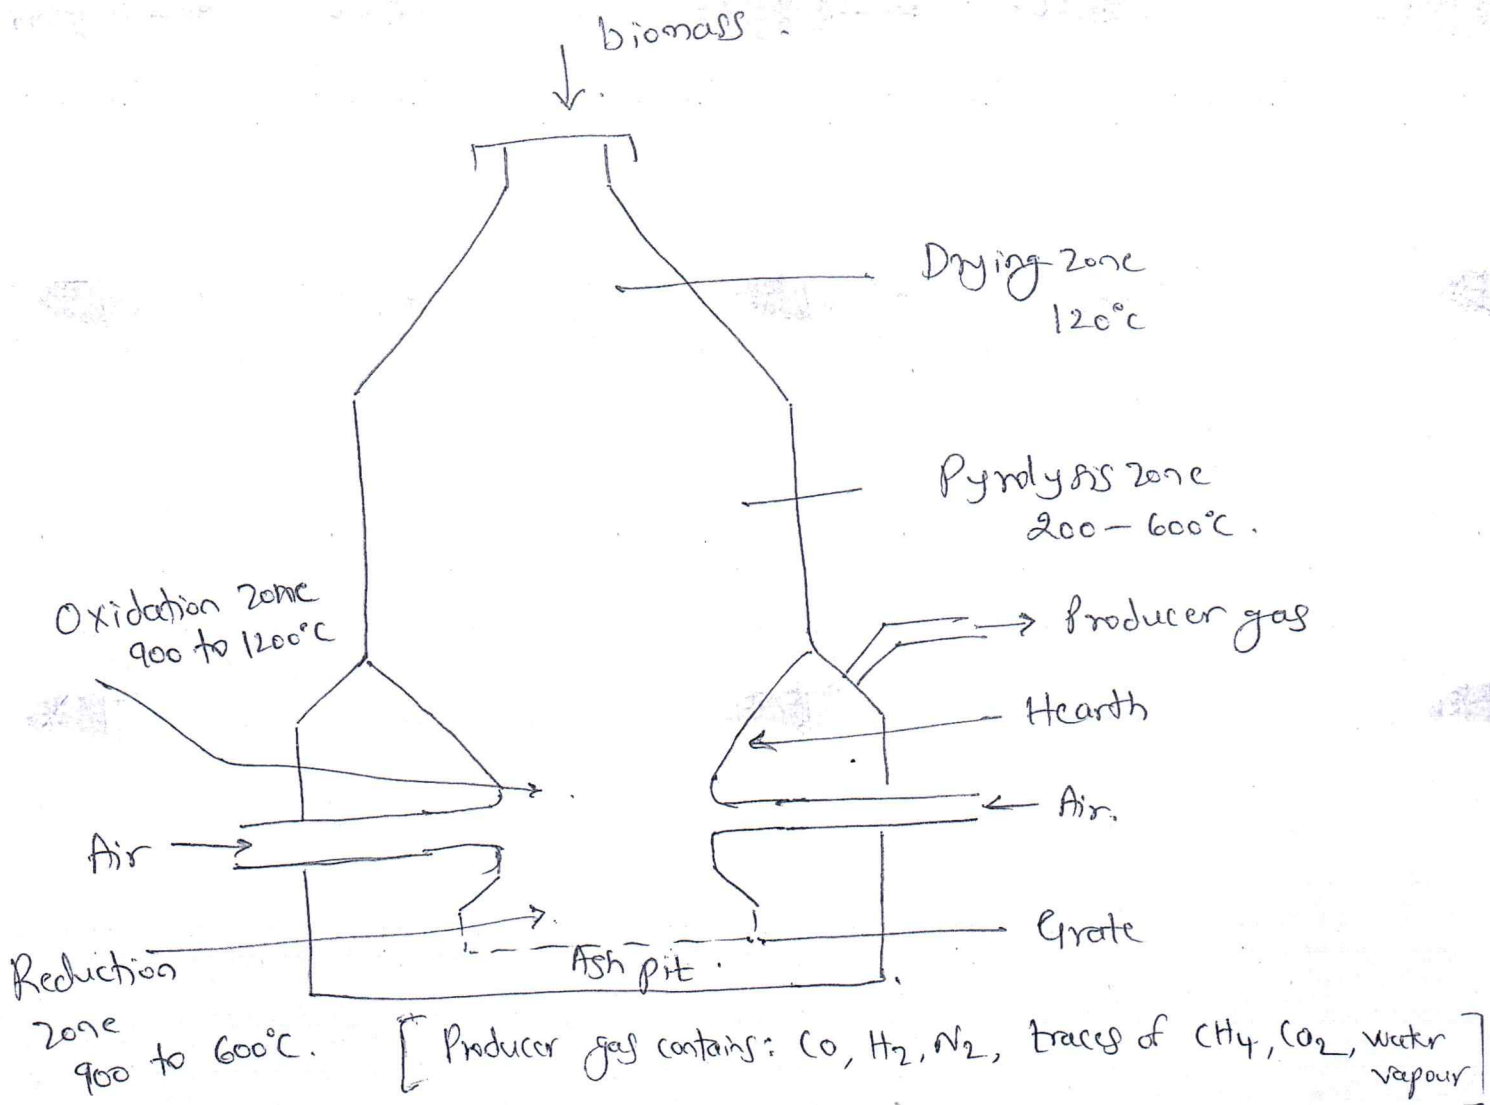 biomass.
Drying zone
120°C
Pyrolysis zone
200 - 600°C.
Oxidation zone
900 to 1200°C
Producer gas
Hearth
Air.
Air
Grate
Ash pit.
Reduction
zone
900 to 600°C.
[Producer gas contains: CO, H2, N2, traces of CH4, CO2, water
vapour]